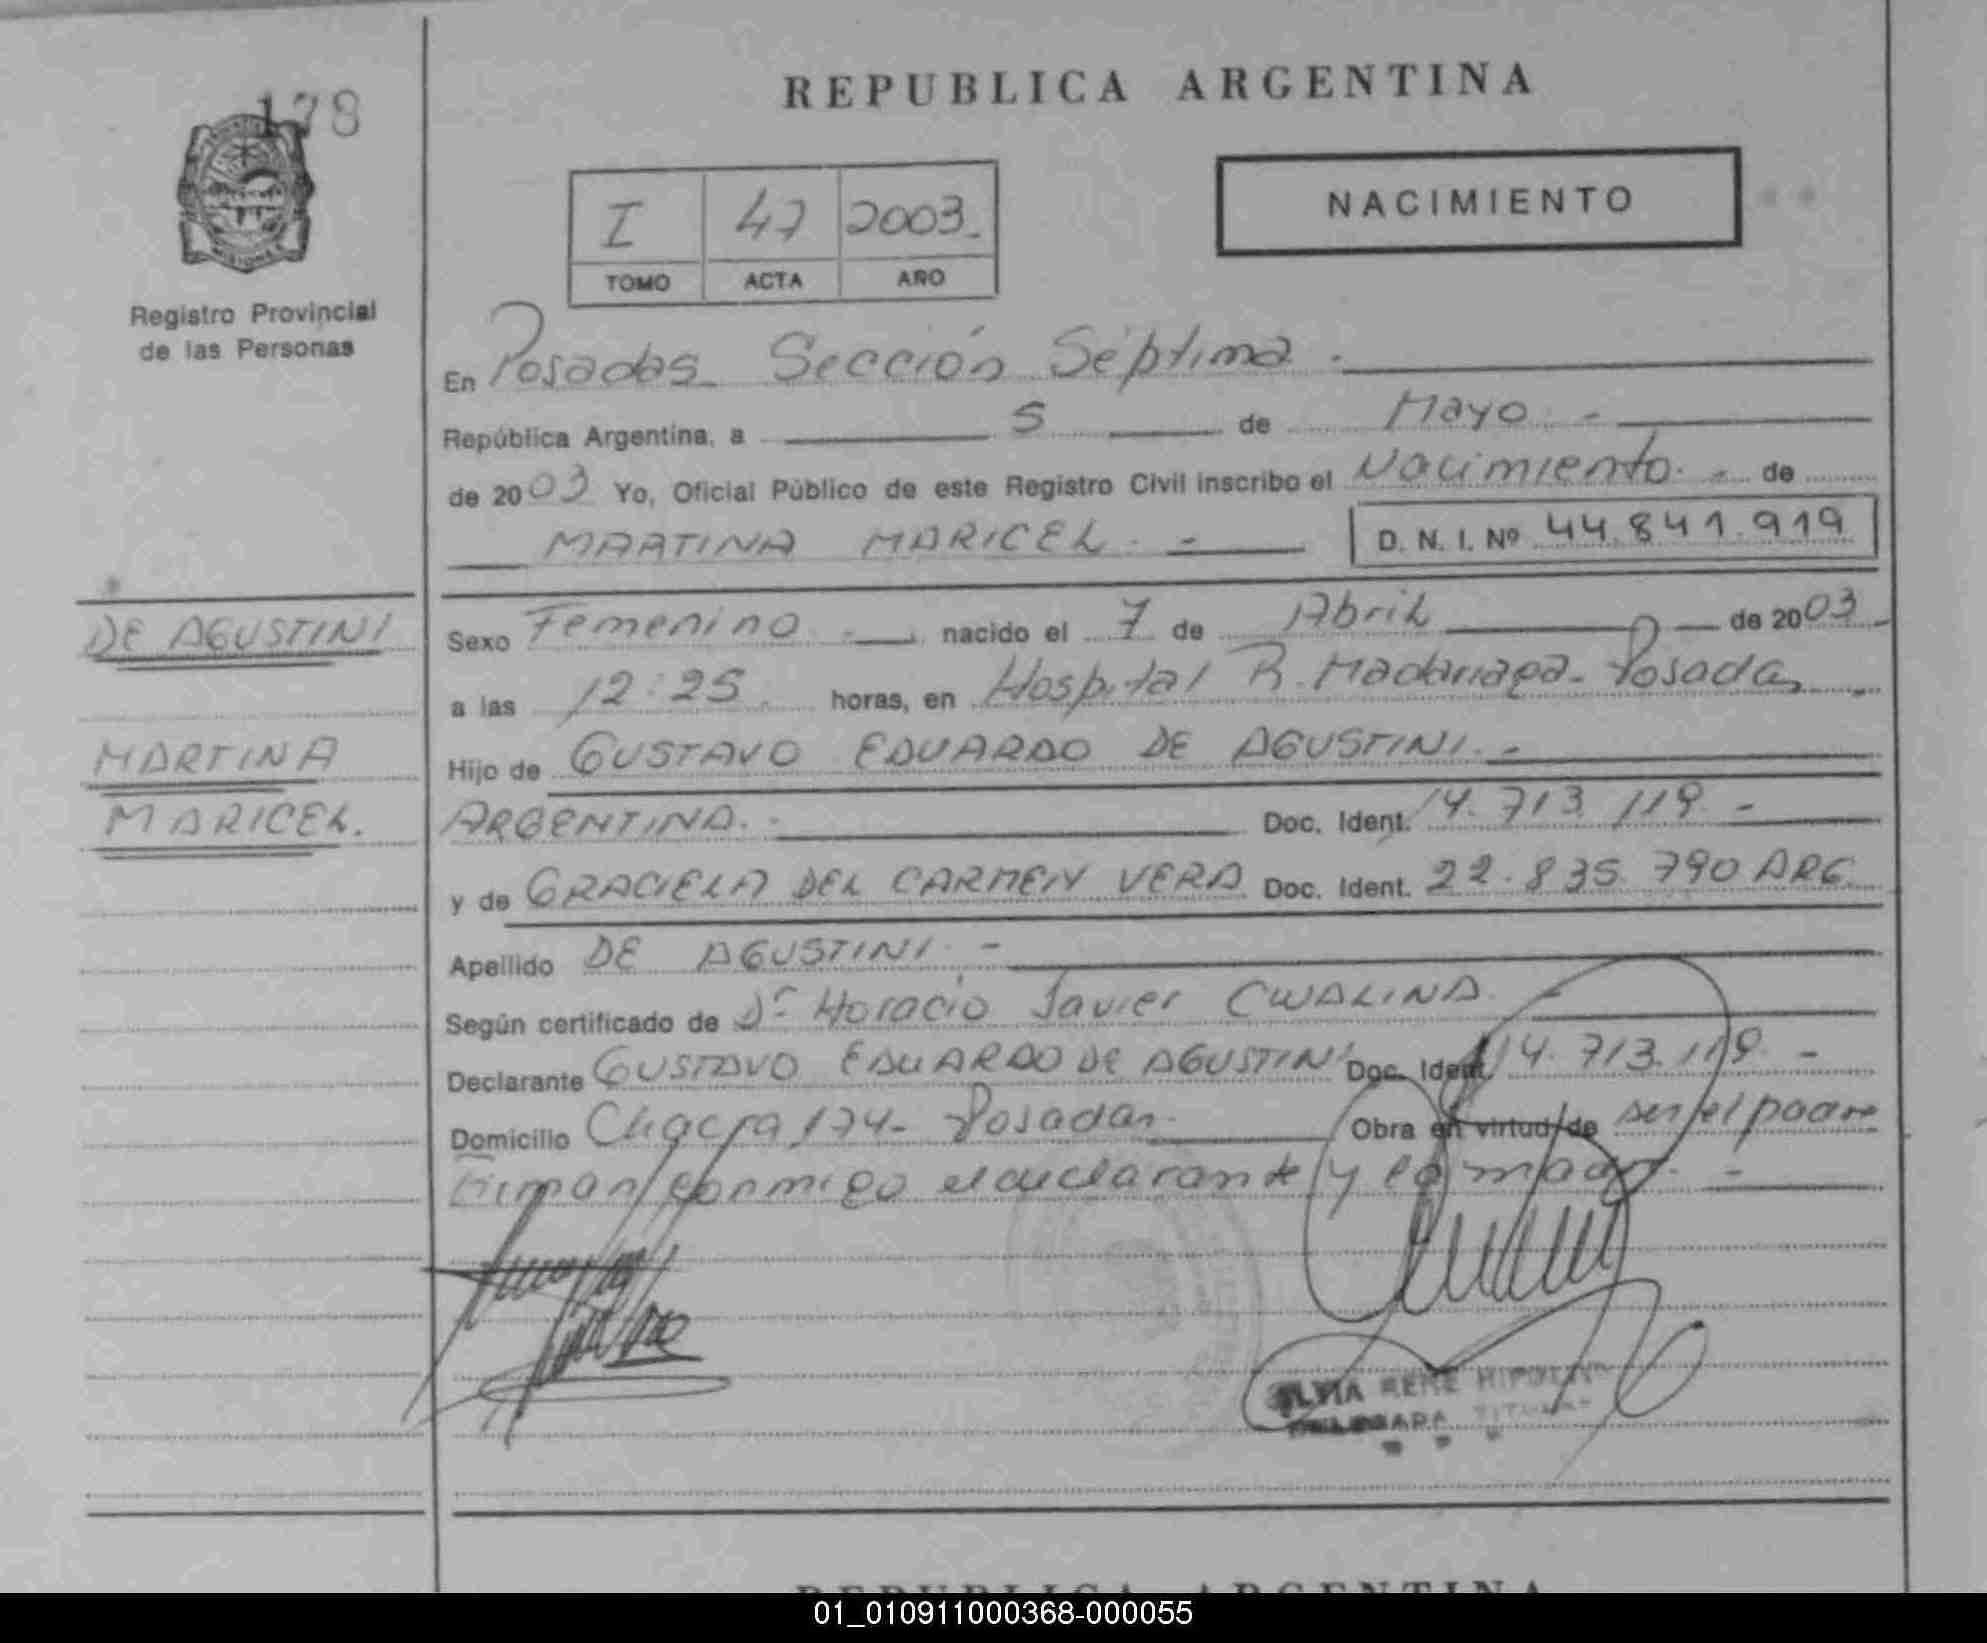 178
REPUBLICA ARGENTINA
I 47 2003.
TOMO ACTA AÑO
NACIMIENTO
Registro Provincial
de las Personas
En Posadas Sección Séptima.
República Argentina, a 5 de Mayo
de 2003 Yo, Oficial Público de este Registro Civil inscribo el Nacimiento. de
MARTINA MARICEL. D. N. I. Nº 44.841.919
DE AGUSTINI
MARTINA
MARICEL.
Sexo Femenino nacido el 7 de Abril de 2003
a las 12:25 horas, en Hospital R. Madariaga - Posadas
Hijo de GUSTAVO EDUARDO DE AGUSTINI. -
ARGENTINA. Doc. Ident. 14.713.119 -
y de GRACIELA DEL CARMEN VERA Doc. Ident. 22.835.790 ARG.
Apellido DE AGUSTINI. -
Según certificado de Dr Horacio Javier CWALINA. -
Declarante GUSTAVO EDUARDO DE AGUSTINI Doc. Ident. 14.713.119. -
Domicilio Chacra 174- Posadas. Obra en virtud de ser el padre
Firman conmigo el declarante y la madre. -
SILVIA RENE
DELEGADA TITULAR
REPUBLICA ARGENTINA
01_010911000368-000055